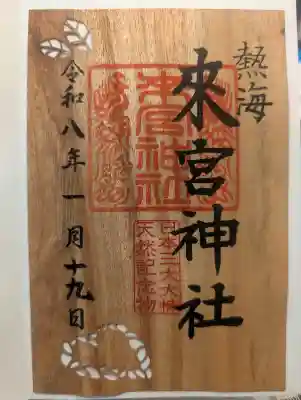 熱海
來宮神社
來宮神社
日本三大大楠
天然記念物
令和八年一月十九日